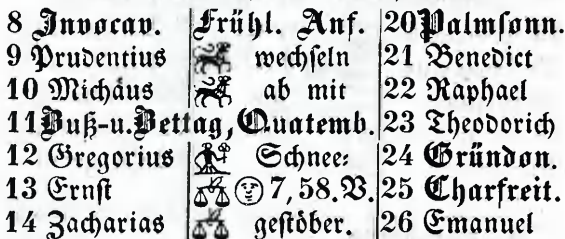 8 Invocav. Frühl. Anf. 20 Palmsonn.
9 Prudentius wechſeln 21 Benedict
10 Michäus ab mit 22 Raphael
11 Buß-u. Bettag, Quatemb. 23 Theodorich
12 Gregorius Schnee: 24 Gründon.
13 Ernſt 7, 58. V. 25 Charfreit.
14 Zacharias geſtöber. 26 Emanuel